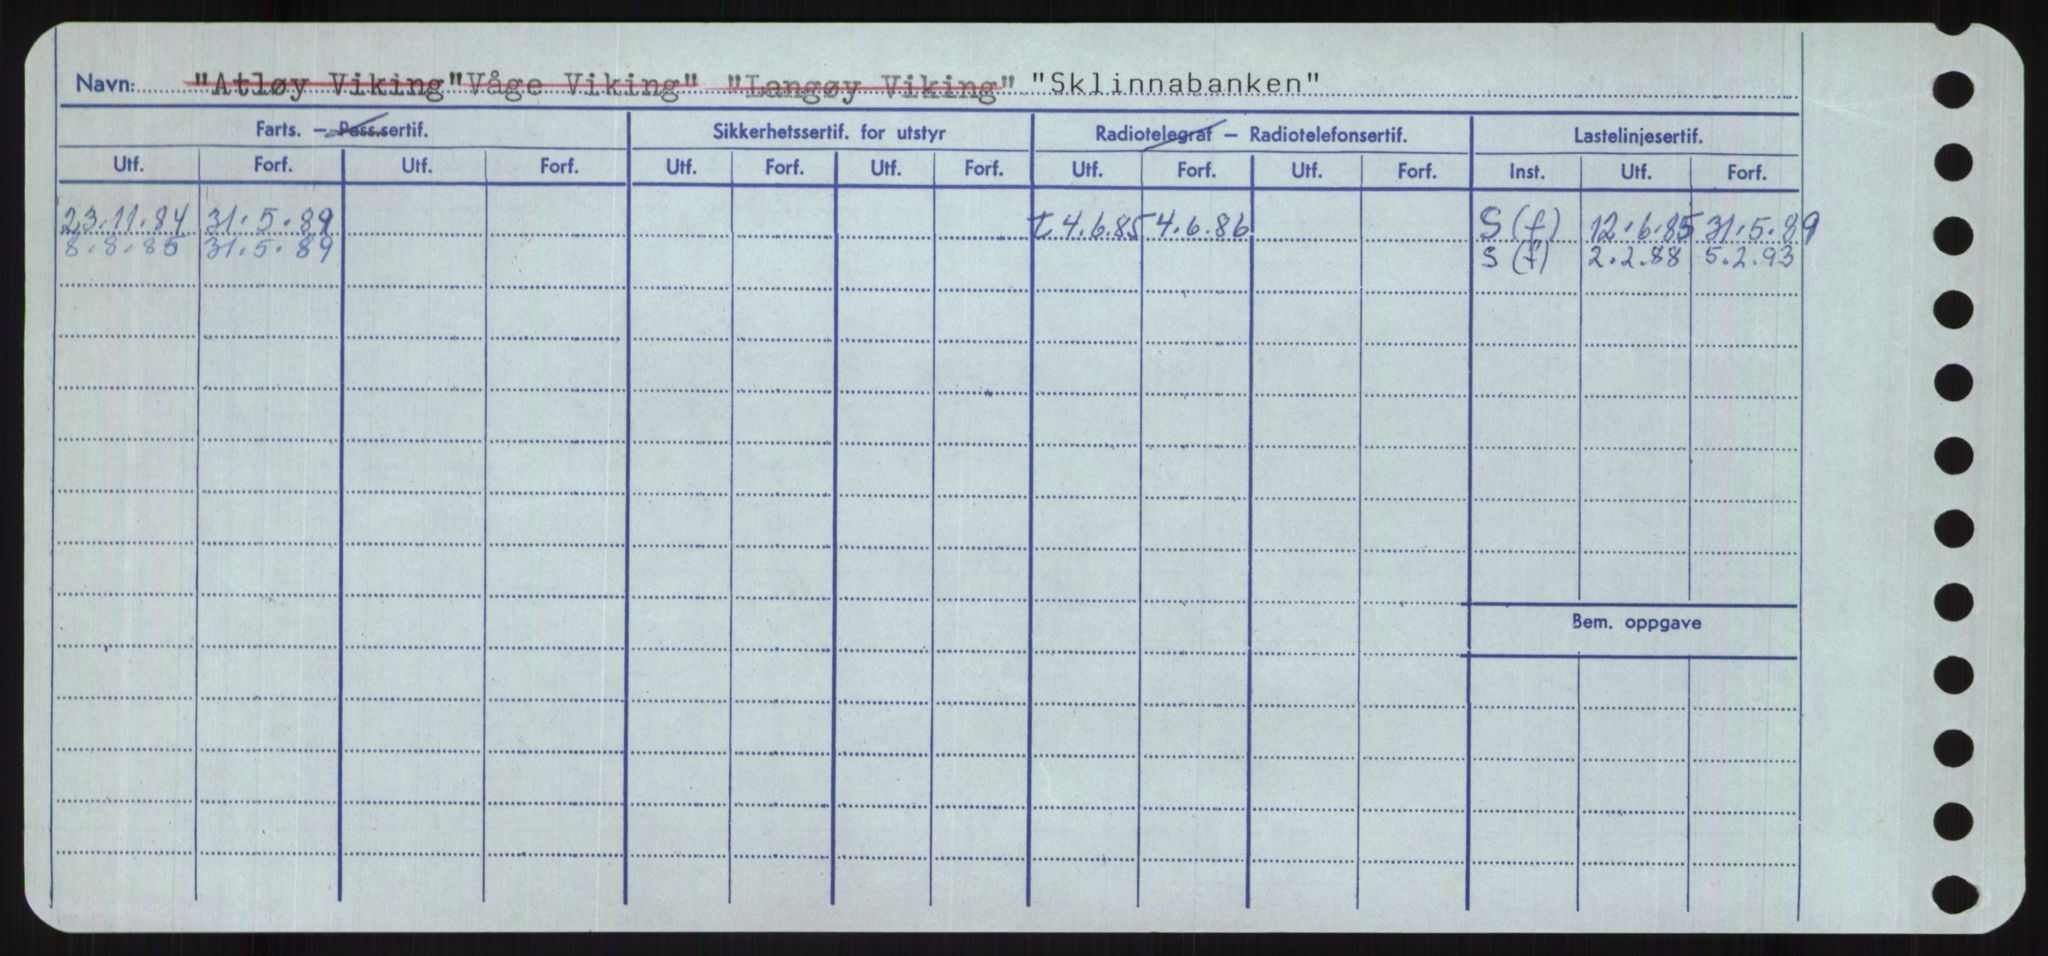 Navn: "Atløy Viking" Våge Viking" "Langøy Viking" "Sklinnabanken"
Farts. – Pass.sertif. Sikkerhetssertif. for utstyr Radiotelegraf – Radiotelefonsertif. Lastelinjesertif.
Utf. Forf. Utf. Forf. Utf. Forf. Utf. Forf. Utf. Forf. Utf. Forf. Inst. Utf. Forf.
23.11.84 31.5.89 t 4.6.85 4.6.86 S (f) 12.6.85 31.5.89
8.8.85 31.5.89 S (f) 2.2.88 5.2.93
Bem. oppgave